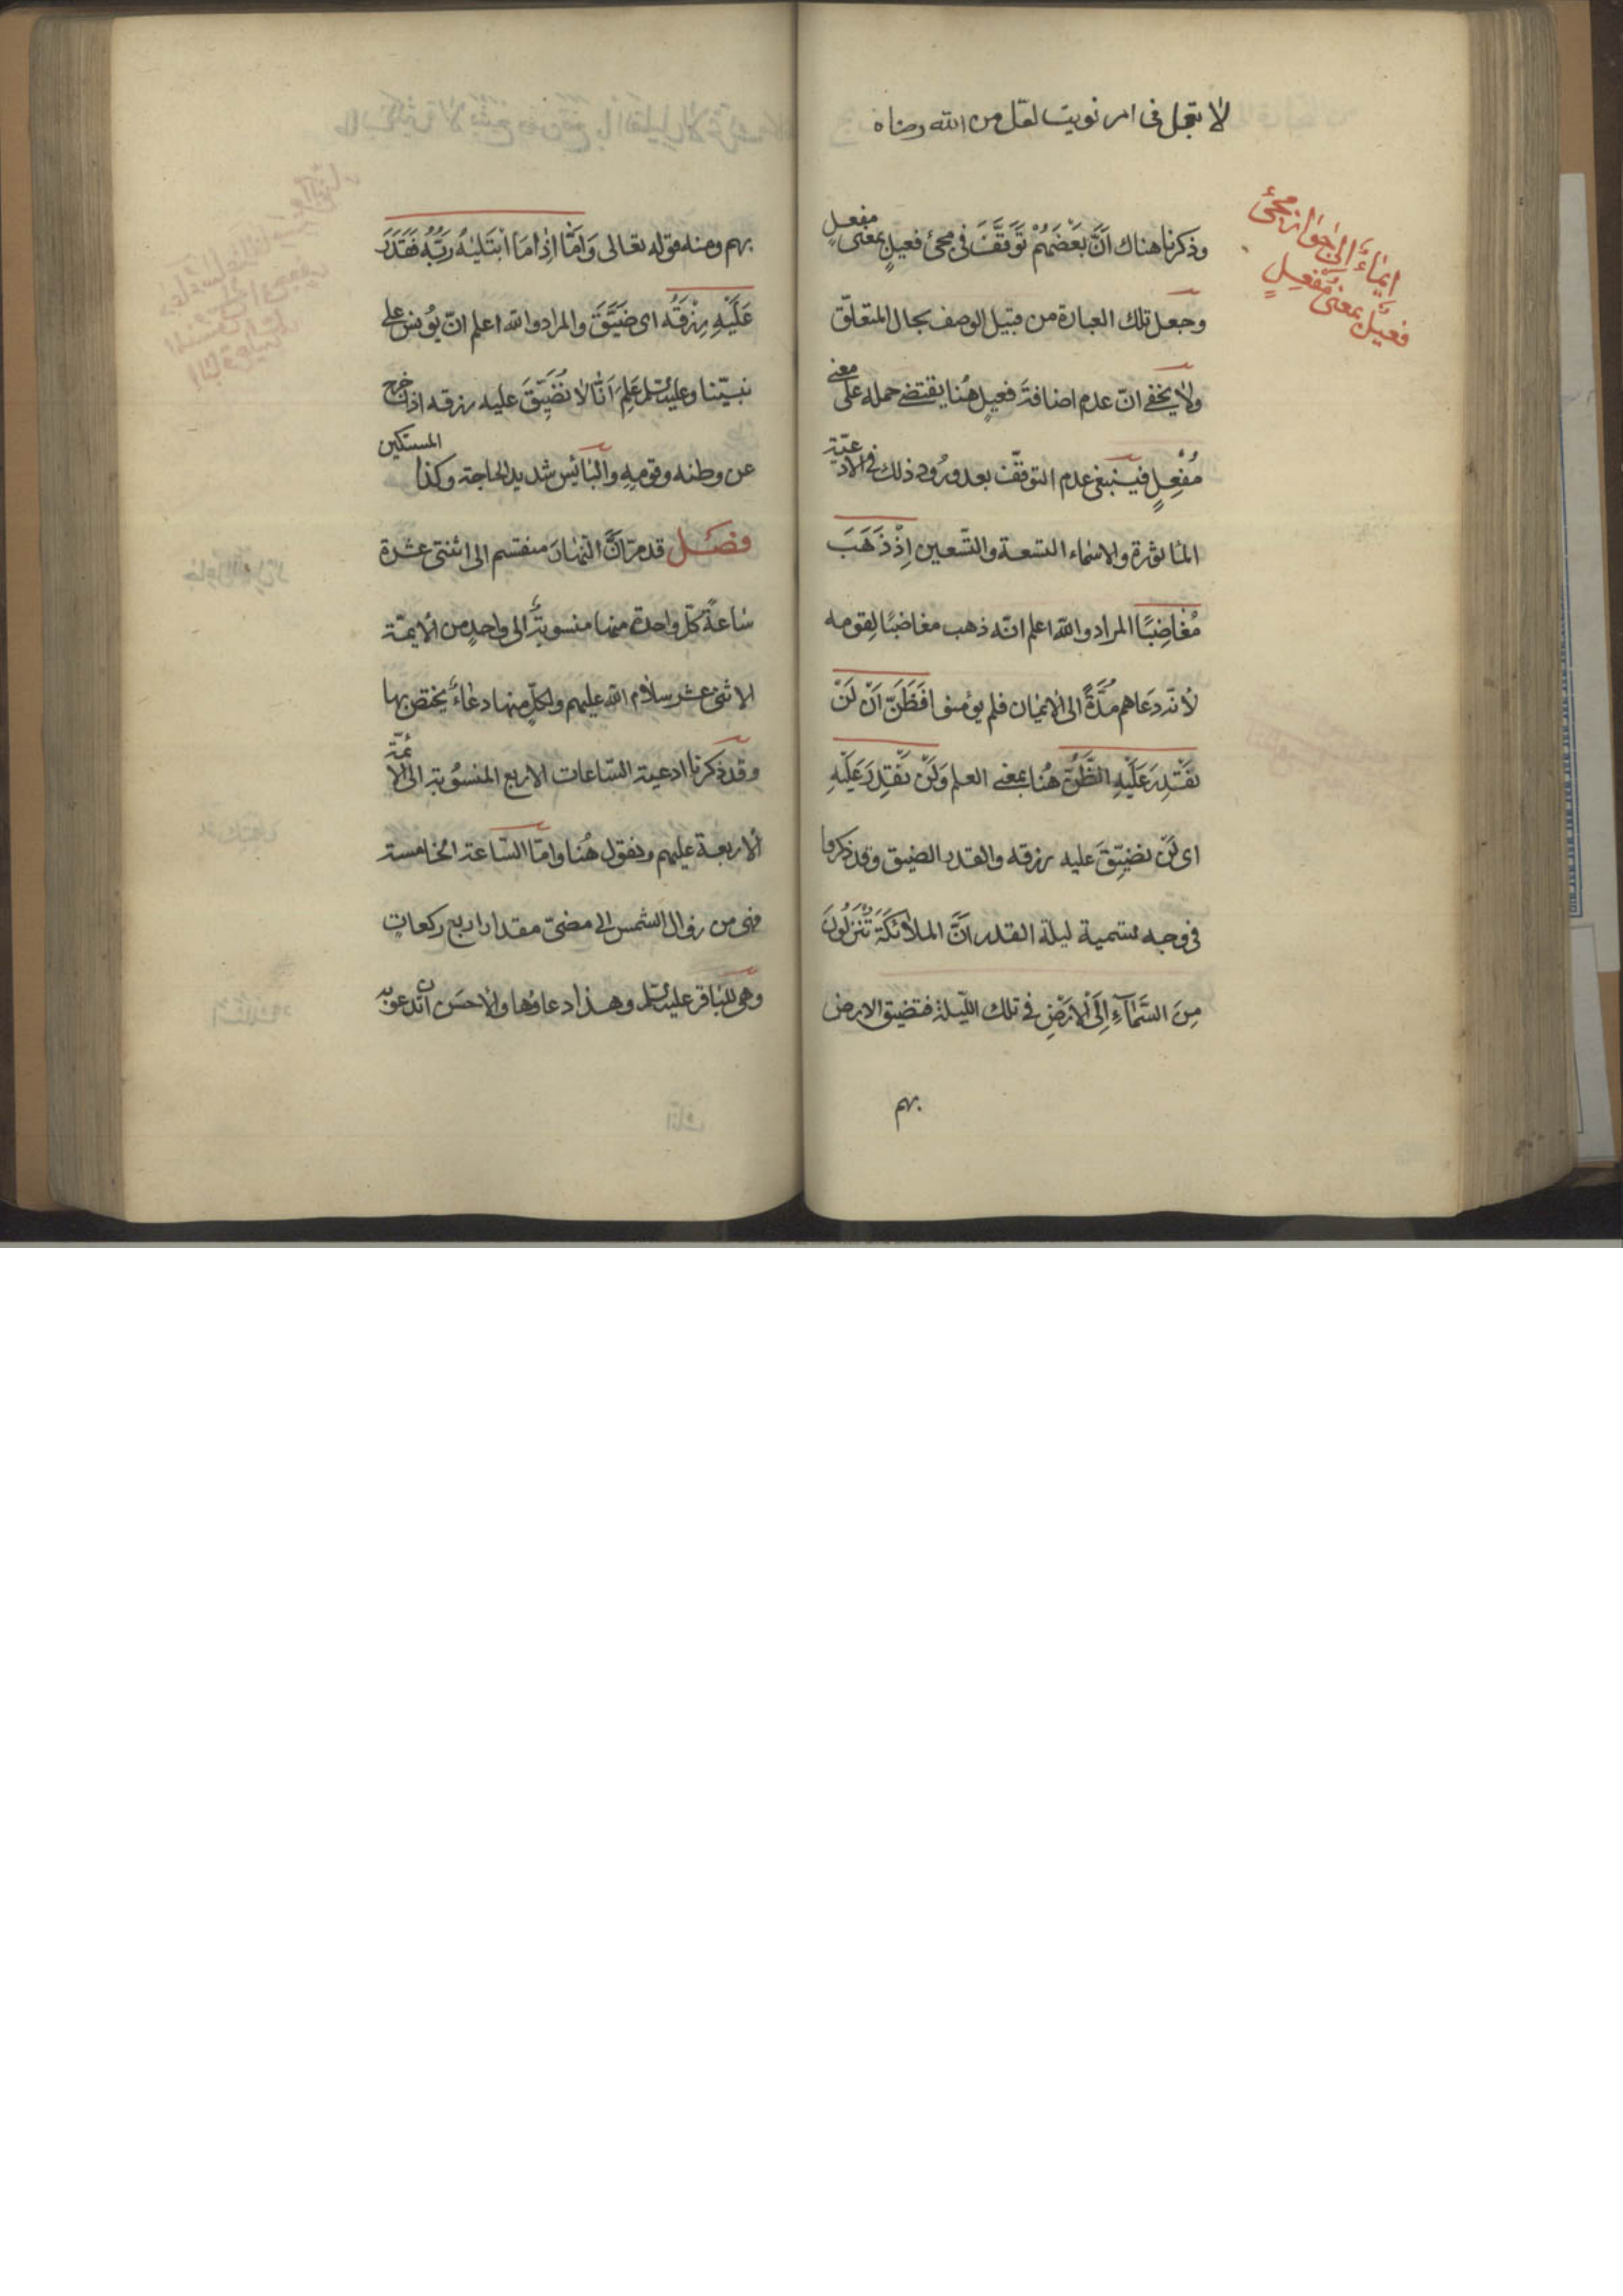 لا تعجل فى امر نويت لعل من الله رضاه
ايماء الى جواز مجئ
فعيل بمعنى مُفْعِلٍ
وذكرنا هناك اَنَّ بَعْضَهُمْ تَوَقَّفَ فى مجئ فعيلٍ بمعنى مفعلٍ
وجعل تلك العبارة من قبيل الوصف بحال المتعلّق
ولا يخفى انّ عدم اضافة فعيلٍ هُنا يقتضى حمله على معنى
مُفْعِلٍ فينبغى عدم التوقّف بعد ورُود ذلك فى الادعيّة
المأثورة والاسماء التسعة والتّسعين اِذْ ذَهَبَ
مُغاضِبًا المراد والله اعلم انّه ذهب مغاضبًا لِقومه
لأنّه دَعاهم مُدَّةً الى الايمان فلم يؤمنوا فَظَنَّ اَنْ لَنْ
نَقْدِرَ عَلَيْهِ الظَّنُّ هُنا بمعنى العلم وَلَنْ نَقْدِرَ عَلَيْهِ
اى لَنْ نضيّقَ عليه رزقه والقدر الضيق وقد ذكرنا
فى وجه تسمية ليلة القدر اَنَّ الملائكَةَ تَنْزِلُونَ
مِنَ السَّمَآءِ اِلَى الاَرْضِ فى تلك اللّيلة فتضيق الارض
بهم
بهم ومنه قوله تعالى وَاَمَّا اِذا مَا ابْتَلَيٰهُ رَبُّهُ فَقَدَرَ
عَلَيْهِ رِزْقَهُ اى ضَيَّقَ والمراد والله اعلم انّ يُونس على
نبيّنا وعليه السّلم عَلِمَ اَنّا لا نُضَيِّقَ عليه رزقه اذا خرج
عن وطنه وقومِهِ والبائِس شديد الحاجة وكذا المستكين
فصل قد مرّ اَنَّ النّهارَ منقسم الى اثنتى عشرة
ساعةً كلّ واحدة منها منسوبةٌ الى واحدٍ من الايمّة
الاثنى عشر سلام الله عليهم ولكلٍّ منها دعاءٌ يختص بها
وقد ذكرنا ادعية السّاعات الاربع المنسُوبة الى الائمّة
الاربعة عليهم ونقول هُنا وامّا السّاعة الخامسة
فهى من زوال الشمس الى مضىّ مقدار اربع ركعات
وهى للباقر عليه السلم وهذا دعاؤها والاحسَن ان تدعو به